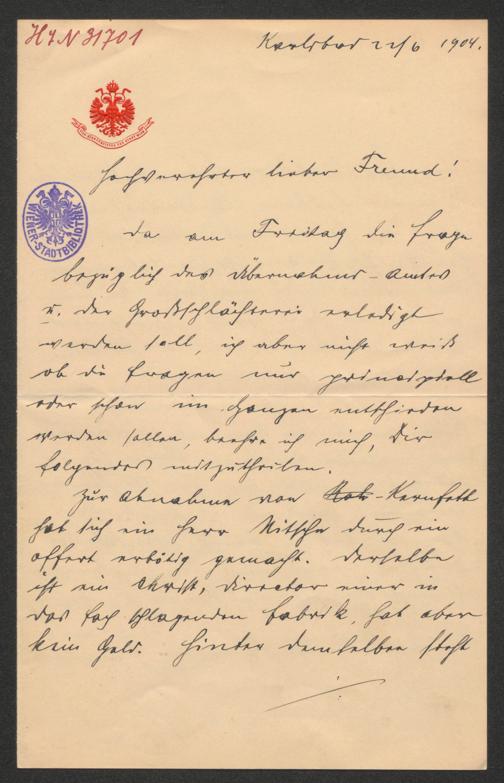 HJN 31701
Karlsbad 22/6 1904.
WIENER-STADTBIBLIOTHEK
Hochverehrter lieber Freund!
Da am Freitag die Frage
bezüglich des Übernahms-Amtes
u. der Großschlächterei erledigt
werden soll, ich aber nicht weiß
ob die Fragen nur principiell
oder schon im Ganzen entschieden
werden sollen, beehre ich mich, Dir
folgendes mitzutheilen.
Zur Abnahme von Roh-Kernfett
hat sich ein Herr Nitsche durch ein
Offert erbötig gemacht. Derselbe
ist ein Christ, Director einer in
das Fach schlagenden Fabrik, hat aber
kein Geld. Hinter demselben steht